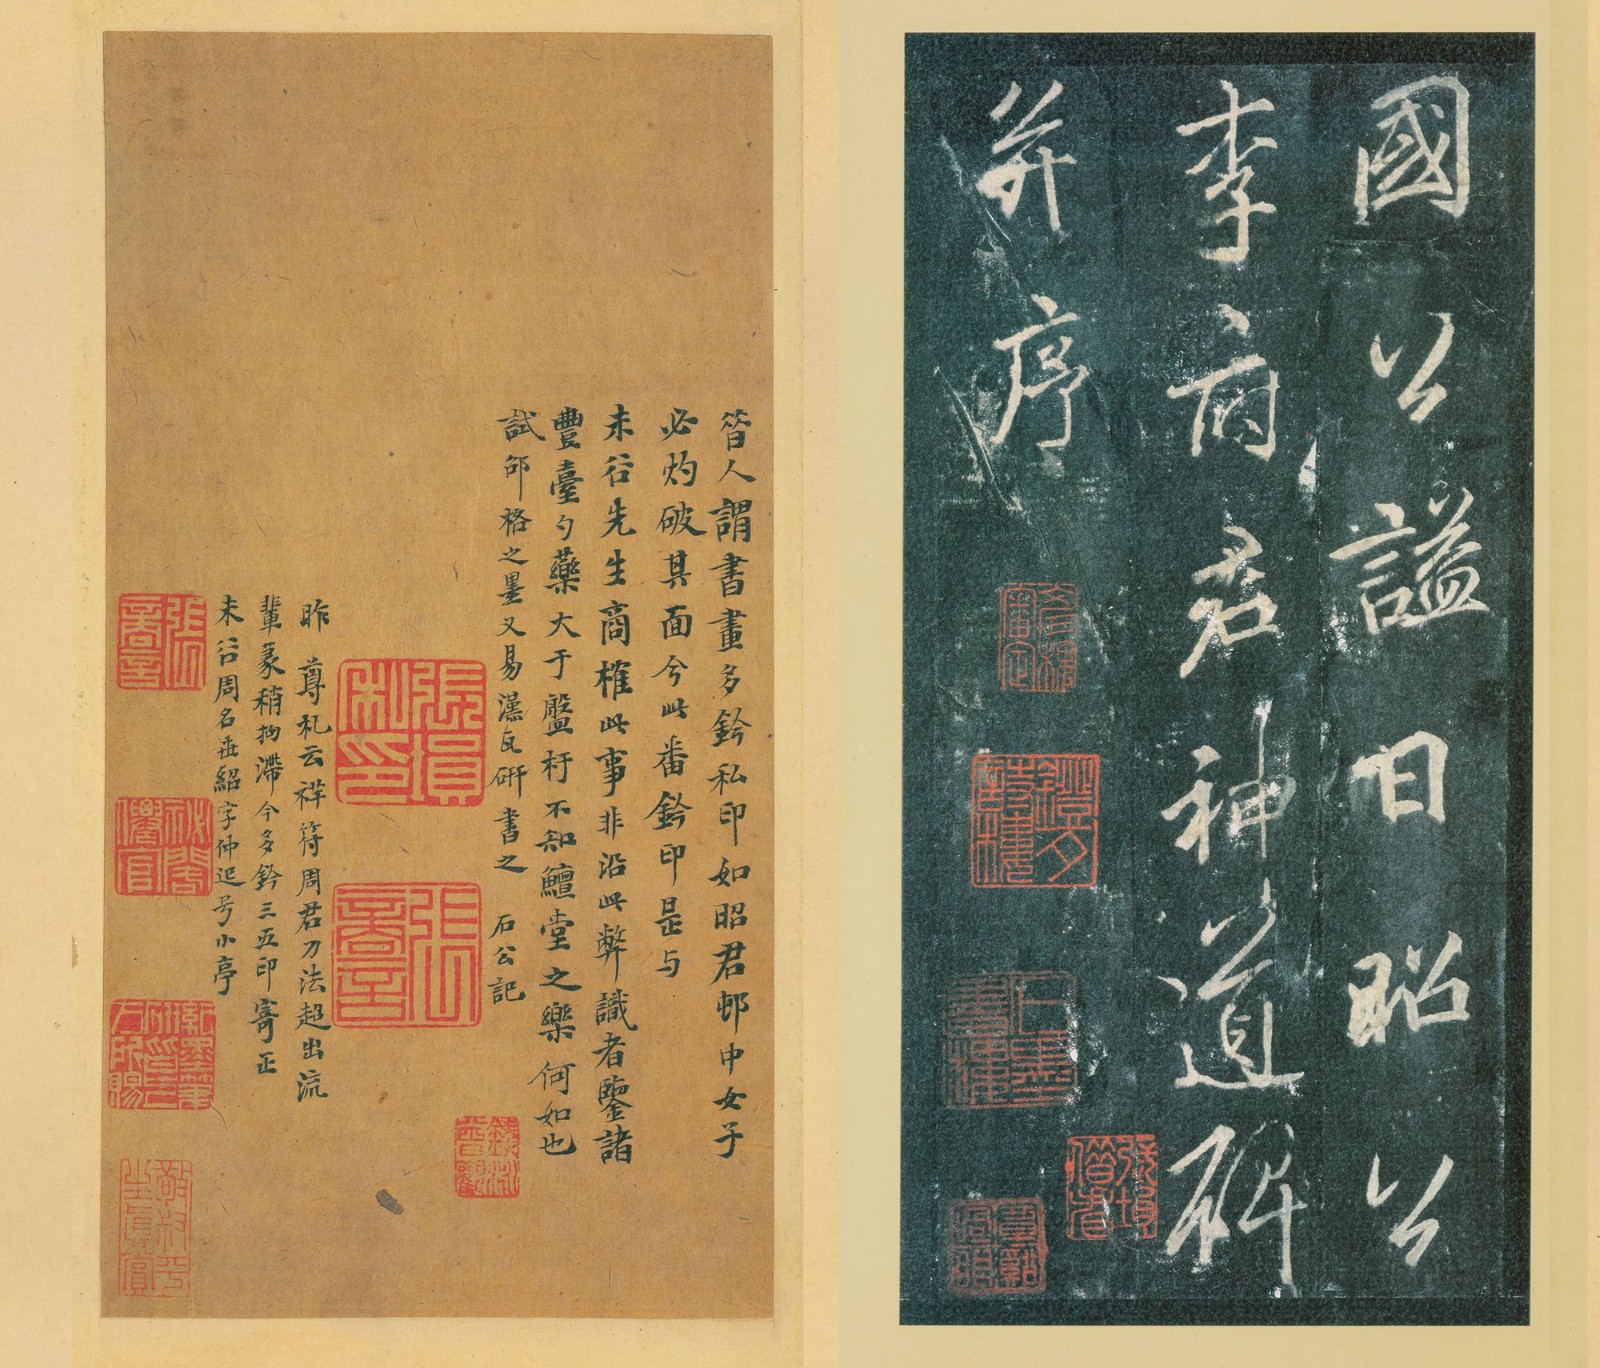 國公謚曰昭公
李府君神道碑
并序
昔人謂書畫多鈐私印如昭君邨中女子
必灼破其面今此番鈐印是与
未谷先生商榷此事非沿此弊識者鑒諸
豐臺勺藥大于盤杅不知鱣堂之樂何如也
試邵格之墨又易漢瓦硏書之 石公記
張塤私印
張商言
昨 尊札云祥符周君刀法超出流
輩篆稍拘滯今多鈐三五印寄正
未谷周名 紹字仲迟号小亭
張商言